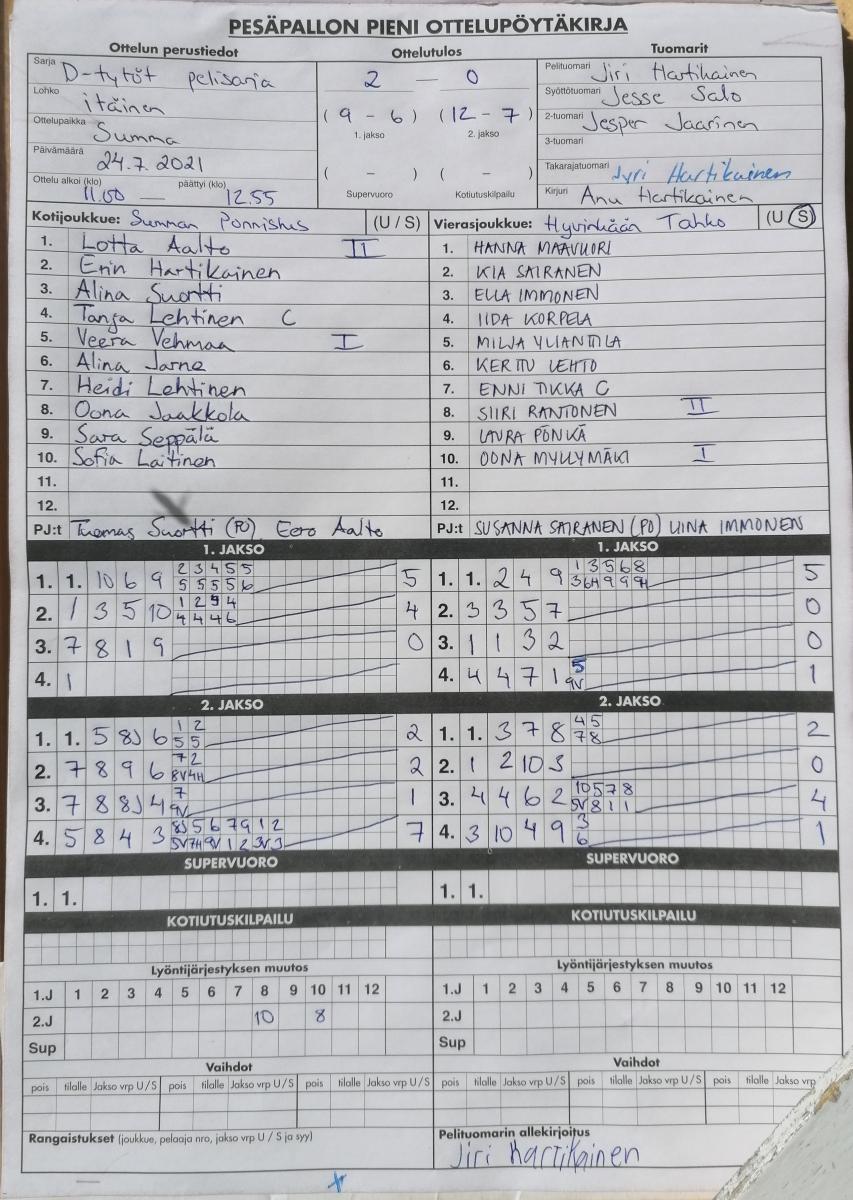 PESÄPALLON PIENI OTTELUPÖYTÄKIRJA
Ottelun perustiedot
Sarja D-tytöt pelisarja
Lohko itäinen
Ottelupaikka Summa
Päivämäärä 24.7.2021
Ottelu alkoi (klo) 11.00 — päättyi (klo) 12.55
Ottelutulos
2 — 0
(9 - 6) (12 - 7)
1. jakso 2. jakso
( - ) ( - )
Supervuoro Kotiutuskilpailu
Tuomarit
Pelituomari Jiri Hartikainen
Syöttötuomari Jesse Salo
2-tuomari Jesper Jaarinen
3-tuomari
Takarajatuomari Jyri Hartikainen
Kirjuri Anu Hartikainen
Kotijoukkue: Summan Ponnistus (U / S)
1. Lotta Aalto II
2. Erin Hartikainen
3. Alina Suortti
4. Tanja Lehtinen C
5. Veera Vehmaa I
6. Alina Jarne
7. Heidi Lehtinen
8. Oona Jaakkola
9. Sara Seppälä
10. Sofia Laitinen
11.
12.
PJ:t Tuomas Suortti (PJ) Eero Aalto
Vierasjoukkue: Hyvinkään Tahko (U / S)
1. HANNA MAAVUORI
2. KIA SAIRANEN
3. ELLA IMMONEN
4. IIDA KORPELA
5. MILJA YLIANTTILA
6. KERTTU LEHTO
7. ENNI TIKKA C
8. SIIRI RANTONEN II
9. LAURA PÖNKÄ
10. OONA MYLLYMÄKI I
11.
12.
PJ:t SUSANNA SAIRANEN (PJ) IINA IMMONEN
1. JAKSO
1. 1. 10 6 9 2 3 4 5 5 5
5 5 5 5 6
2. 1 3 5 10 1 2 3 4 4
4 4 4 6
3. 7 8 1 9 0
4. 1
1. JAKSO
1. 1. 2 4 9 1 3 5 6 8 5
3 6H 9 9 9H
2. 3 3 5 7 0
3. 1 1 3 2 0
4. 4 4 7 1 5 1
9V
2. JAKSO
1. 1. 5 8J 6 1 2 2
5 5
2. 7 8 9 6 7 2 2
8V 4H
3. 7 8 8J 4 7 1
9V
4. 5 8 4 3 8J 5 6 7 9 1 2 7
5V 7H 9V 1 2 3V 3
2. JAKSO
1. 1. 3 7 8 4 5 2
7 8
2. 1 2 10 3 0
3. 4 4 6 2 10 5 7 8 4
5V 8 1 1
4. 3 10 4 9 3 1
6
SUPERVUORO
1. 1.
SUPERVUORO
1. 1.
KOTIUTUSKILPAILU
KOTIUTUSKILPAILU
Lyöntijärjestyksen muutos
1.J 1 2 3 4 5 6 7 8 9 10 11 12
2.J 10 8
Sup
Lyöntijärjestyksen muutos
1.J 1 2 3 4 5 6 7 8 9 10 11 12
2.J
Sup
Vaihdot
pois tilalle Jakso vrp U/S pois tilalle Jakso vrp U/S pois tilalle Jakso vrp U/S
Vaihdot
pois tilalle Jakso vrp U/S pois tilalle Jakso vrp U/S pois tilalle Jakso vrp
Rangaistukset (joukkue, pelaaja nro, jakso vrp U / S ja syy)
Pelituomarin allekirjoitus
Jiri Hartikainen